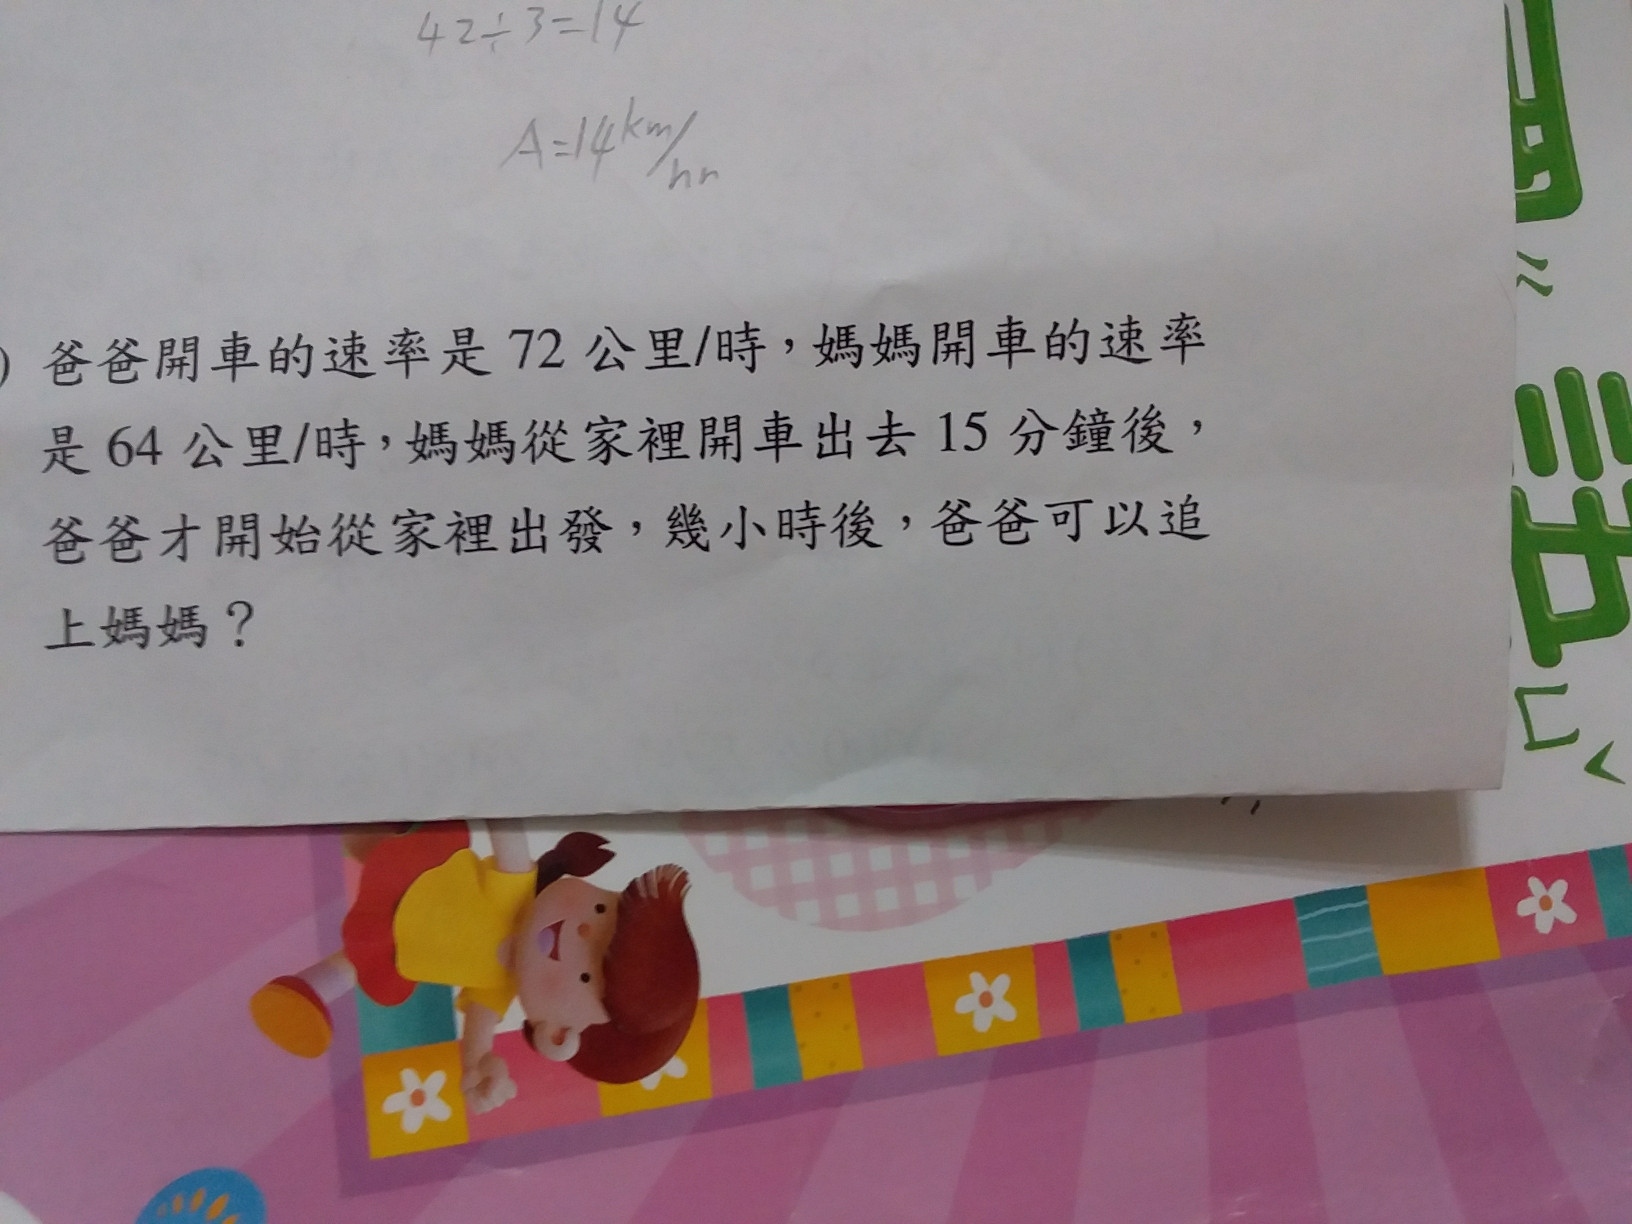 42÷3=14
A=14km/hr
爸爸開車的速率是 72 公里/時，媽媽開車的速率
是 64 公里/時，媽媽從家裡開車出去 15 分鐘後，
爸爸才開始從家裡出發，幾小時後，爸爸可以追
上媽媽？